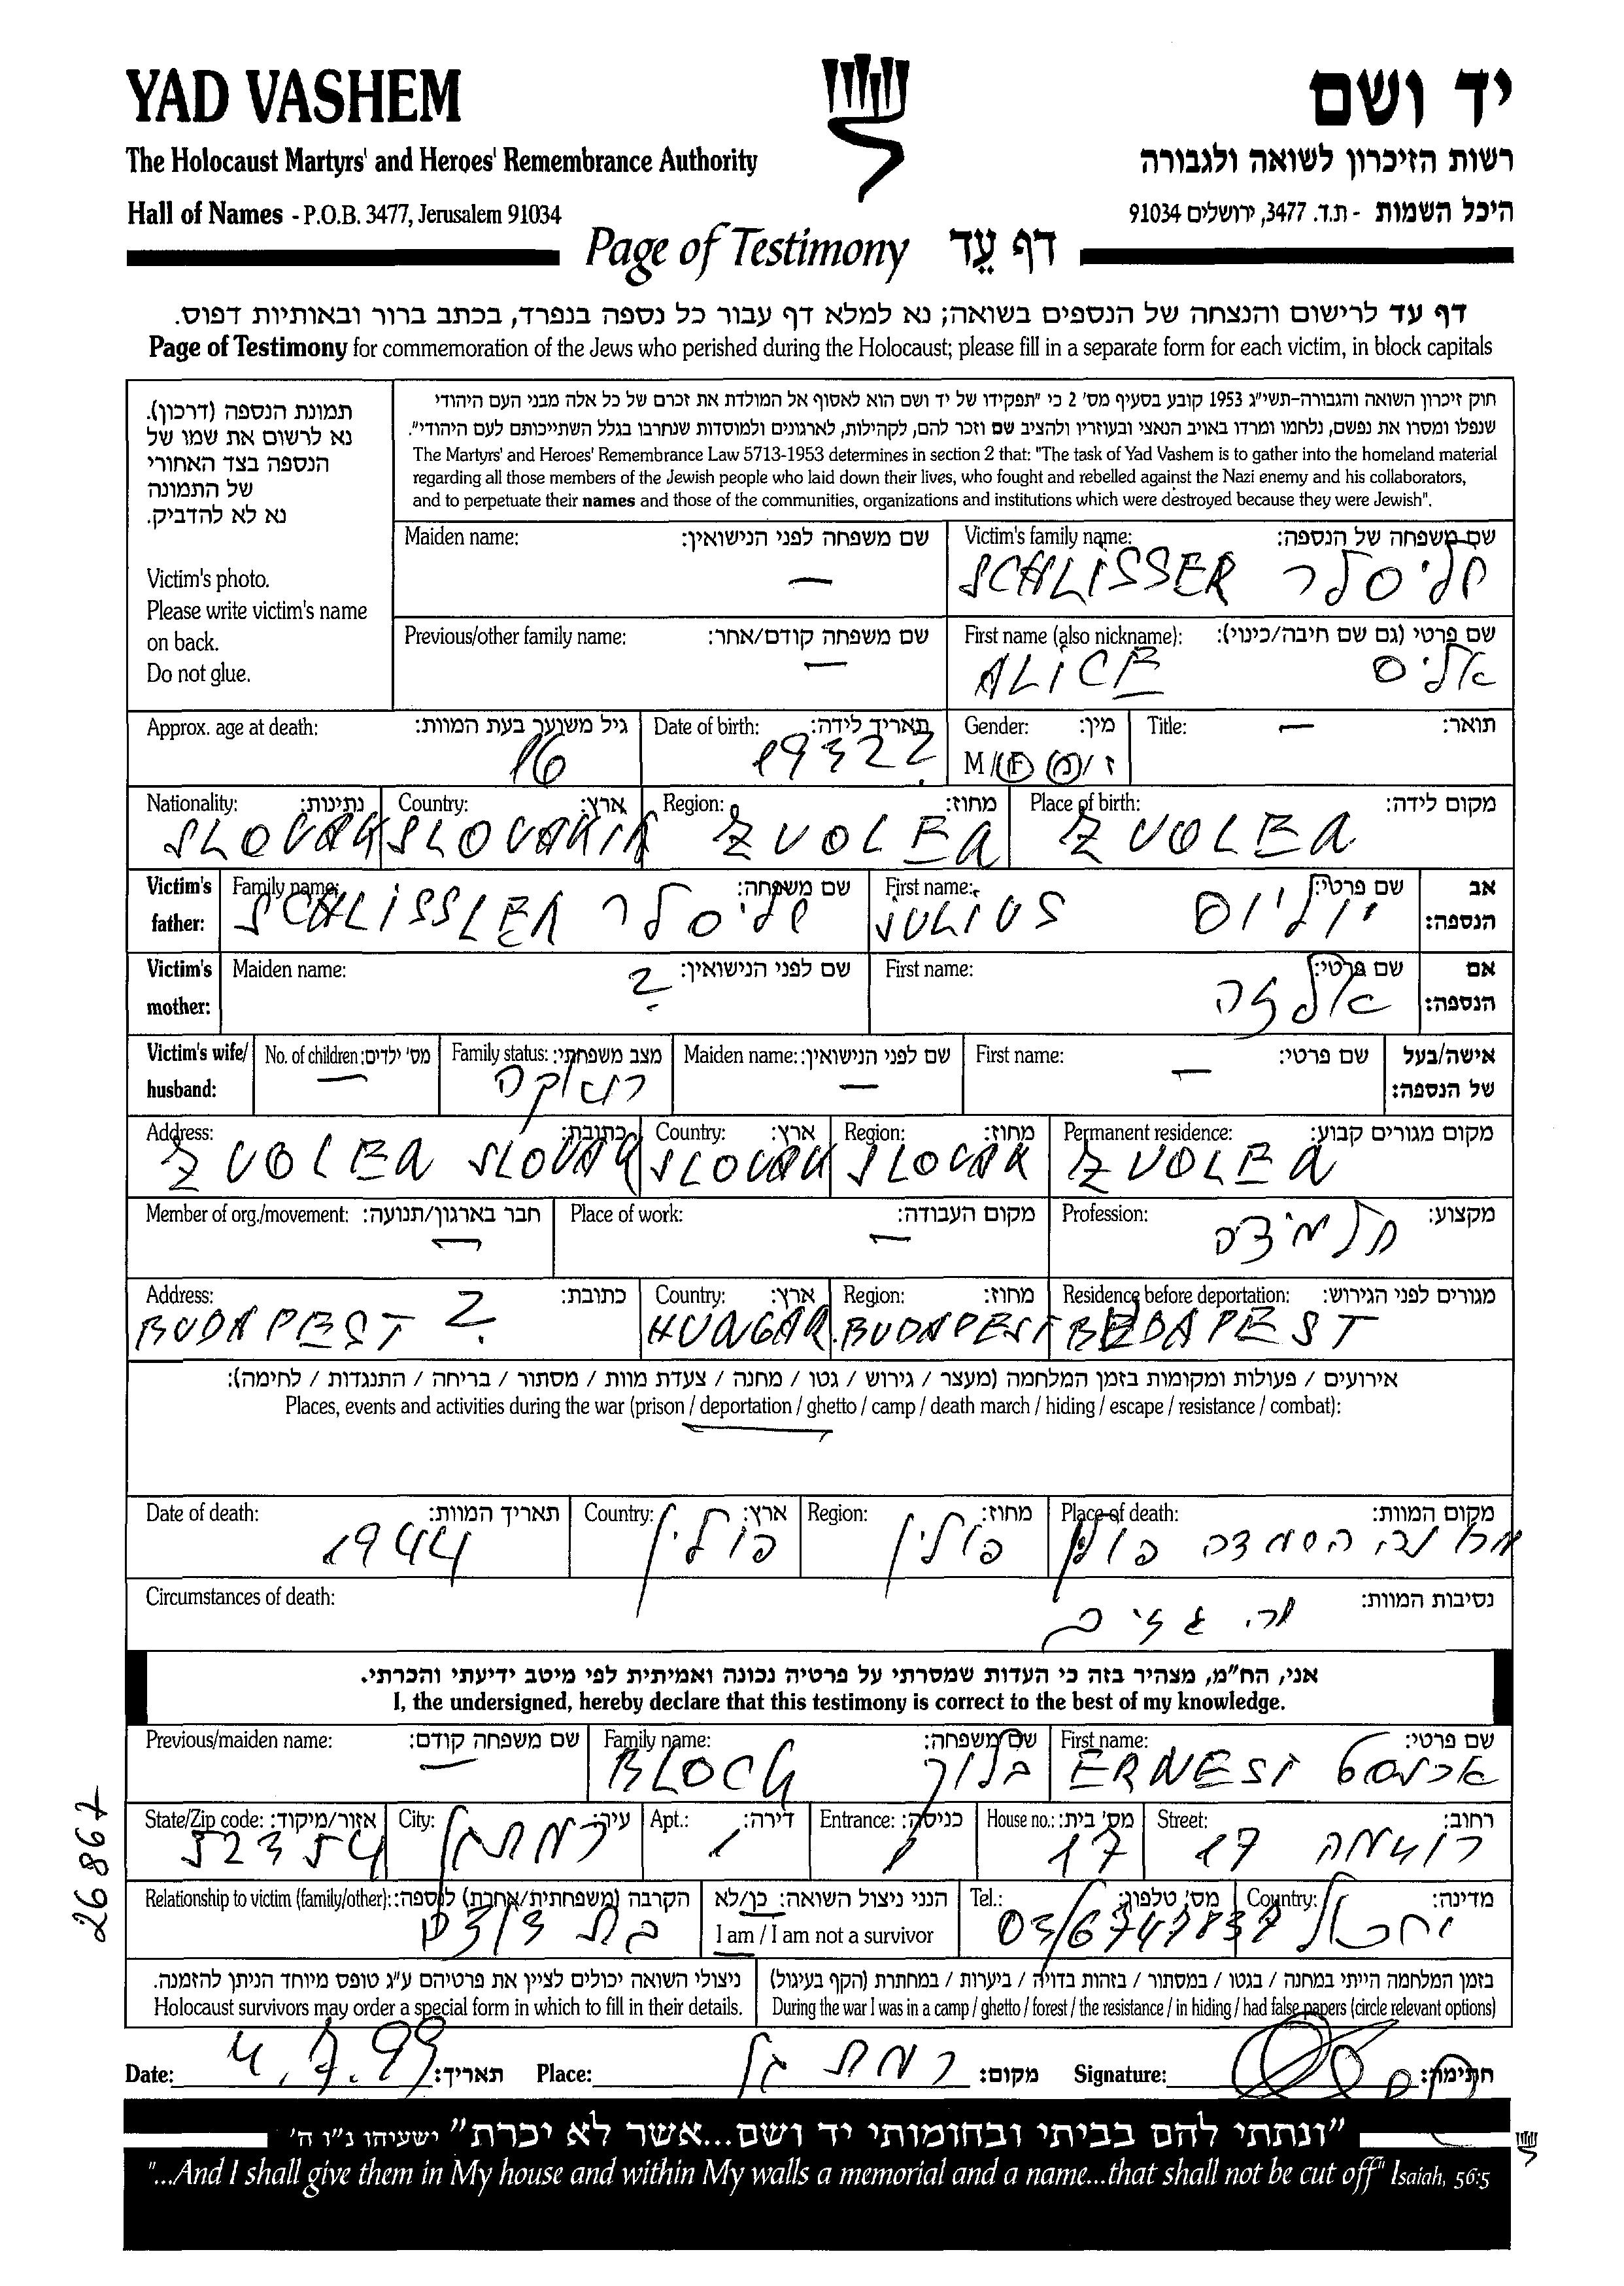 YAD VASHEM
יד ושם
The Holocaust Martyrs' and Heroes' Remembrance Authority
רשות הזיכרון לשואה ולגבורה
Hall of Names - P.O.B. 3477, Jerusalem 91034
היכל השמות - ת.ד. 3477, ירושלים 91034
Page of Testimony דף עֵד
דף עד לרישום והנצחה של הנספים בשואה; נא למלא דף עבור כל נספה בנפרד, בכתב ברור ובאותיות דפוס.
Page of Testimony for commemoration of the Jews who perished during the Holocaust; please fill in a separate form for each victim, in block capitals
תמונת הנספה (דרכון).
נא לרשום את שמו של
הנספה בצד האחורי
של התמונה
נא לא להדביק.
Victim's photo.
Please write victim's name
on back.
Do not glue.
חוק זיכרון השואה והגבורה-תשי"ג 1953 קובע בסעיף מס' 2 כי "תפקידו של יד ושם הוא לאסוף אל המולדת את זכרם של כל אלה מבני העם היהודי
שנפלו ומסרו את נפשם, נלחמו ומרדו באויב הנאצי ובעוזריו ולהציב שם וזכר להם, לקהילות, לארגונים ולמוסדות שנחרבו בגלל השתייכותם לעם היהודי".
The Martyrs' and Heroes' Remembrance Law 5713-1953 determines in section 2 that: "The task of Yad Vashem is to gather into the homeland material
regarding all those members of the Jewish people who laid down their lives, who fought and rebelled against the Nazi enemy and his collaborators,
and to perpetuate their names and those of the communities, organizations and institutions which were destroyed because they were Jewish".
Maiden name: שם משפחה לפני הנישואין: —
Victim's family name: שם משפחה של הנספה:
SCHLISSER שליסלר
Previous/other family name: שם משפחה קודם/אחר: —
First name (also nickname): שם פרטי (גם שם חיבה/כינוי):
ALICE אליס
Approx. age at death: גיל משוער בעת המוות: 16
Date of birth: תאריך לידה: 1932?
Gender: מין: M/F ז/נ
Title: תואר: —
Nationality: נתינות: SLOVAK
Country: ארץ: SLOVAKIA
Region: מחוז: ZVOLEN
Place of birth: מקום לידה: ZVOLEN
Victim's father: Family name: שם משפחה: SCHLISSLER שליסלר
First name: שם פרטי: JULIUS יוליוס
אב הנספה:
Victim's mother: Maiden name: שם לפני הנישואין: ?
First name: שם פרטי: אלזה
אם הנספה:
Victim's wife/husband: No. of children: מס' ילדים: —
Family status: מצב משפחתי: רווקה
Maiden name: שם לפני הנישואין: —
First name: שם פרטי: —
אישה/בעל של הנספה:
Address: כתובת: ZVOLEN SLOVAK
Country: ארץ: SLOVAK
Region: מחוז: SLOVAK
Permanent residence: מקום מגורים קבוע: ZVOLEN
Member of org./movement: חבר בארגון/תנועה: —
Place of work: מקום העבודה: —
Profession: מקצוע: תלמידה
Address: כתובת: BUDAPEST ?
Country: ארץ: HUNGAR.
Region: מחוז: BUDAPEST
Residence before deportation: מגורים לפני הגירוש: BUDAPEST
אירועים / פעולות ומקומות בזמן המלחמה (מעצר / גירוש / גטו / מחנה / צעדת מוות / מסתור / בריחה / התנגדות / לחימה):
Places, events and activities during the war (prison / deportation / ghetto / camp / death march / hiding / escape / resistance / combat):
Date of death: תאריך המוות: 1944
Country: ארץ: פולין
Region: מחוז: פולין
Place of death: מקום המוות: מחנה השמדה פולין
Circumstances of death: נסיבות המוות:
אני, הח"מ, מצהיר בזה כי העדות שמסרתי על פרטיה נכונה ואמיתית לפי מיטב ידיעתי והכרתי.
I, the undersigned, hereby declare that this testimony is correct to the best of my knowledge.
Previous/maiden name: שם משפחה קודם: —
Family name: שם משפחה: BLOCH בלוך
First name: שם פרטי: ERNEST ארנסט
State/Zip code: אזור/מיקוד: 52354
City: עיר: רמת גן
Apt.: דירה: 1
Entrance: כניסה: 1
House no.: מס' בית: 17
Street: רחוב: 17
Relationship to victim (family/other): הקרבה (משפחתית/אחרת) לנספה: בת דודם
הנני ניצול השואה: כן/לא
I am / I am not a survivor
Tel.: מס' טלפון: 03/6747837
Country: מדינה: ישראל
ניצולי השואה יכולים לציין את פרטיהם ע"ג טופס מיוחד הניתן להזמנה.
Holocaust survivors may order a special form in which to fill in their details.
בזמן המלחמה הייתי במחנה / בגטו / במסתור / בזהות בדויה / ביערות / במחתרת (הקף בעיגול)
During the war I was in a camp / ghetto / forest / the resistance / in hiding / had false papers (circle relevant options)
Date: 4.7.99 תאריך:
Place: רמת גן מקום:
Signature: חתימה:
"ונתתי להם בביתי ובחומותי יד ושם...אשר לא יכרת" ישעיהו נ"ו ה'
"...And I shall give them in My house and within My walls a memorial and a name...that shall not be cut off" Isaiah, 56:5
26867